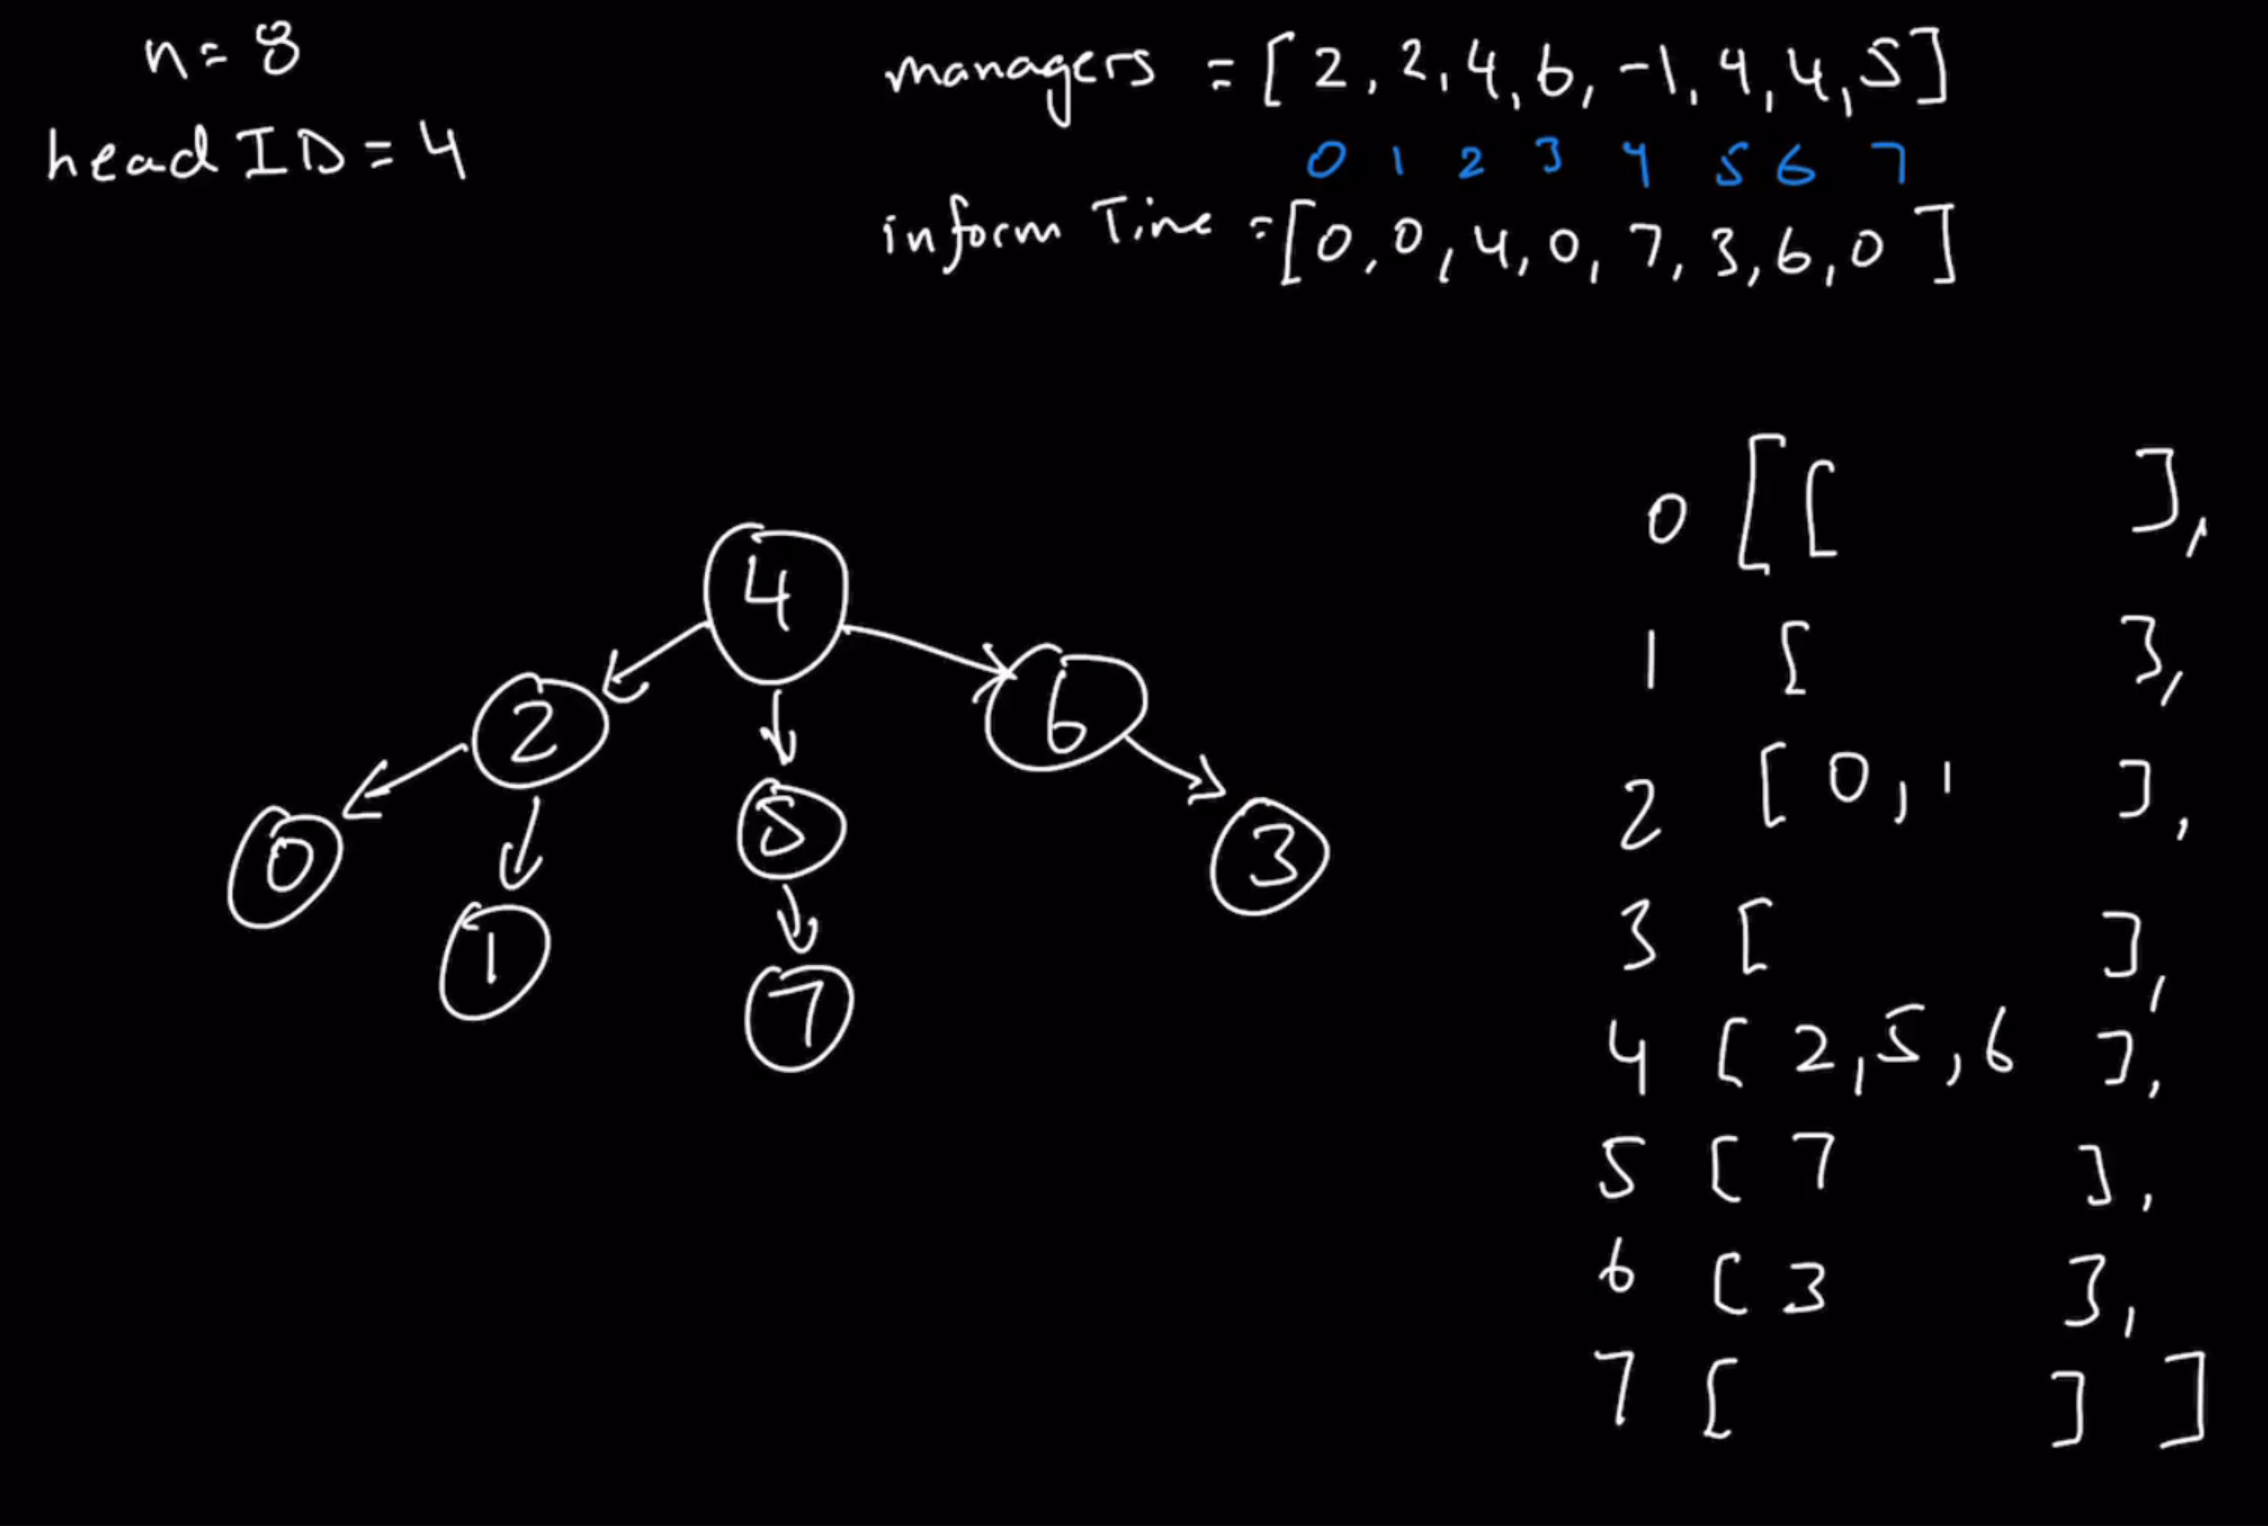 n = 8
head ID = 4
managers = [ 2, 2, 4, 6, -1, 4, 4, 5 ]
0 1 2 3 4 5 6 7
inform Time = [ 0, 0, 4, 0, 7, 3, 6, 0 ]
4
2
6
0
5
3
1
7
0 [ [ ],
1 [ ],
2 [ 0, 1 ],
3 [ ],
4 [ 2, 5, 6 ],
5 [ 7 ],
6 [ 3 ],
7 [ ] ]